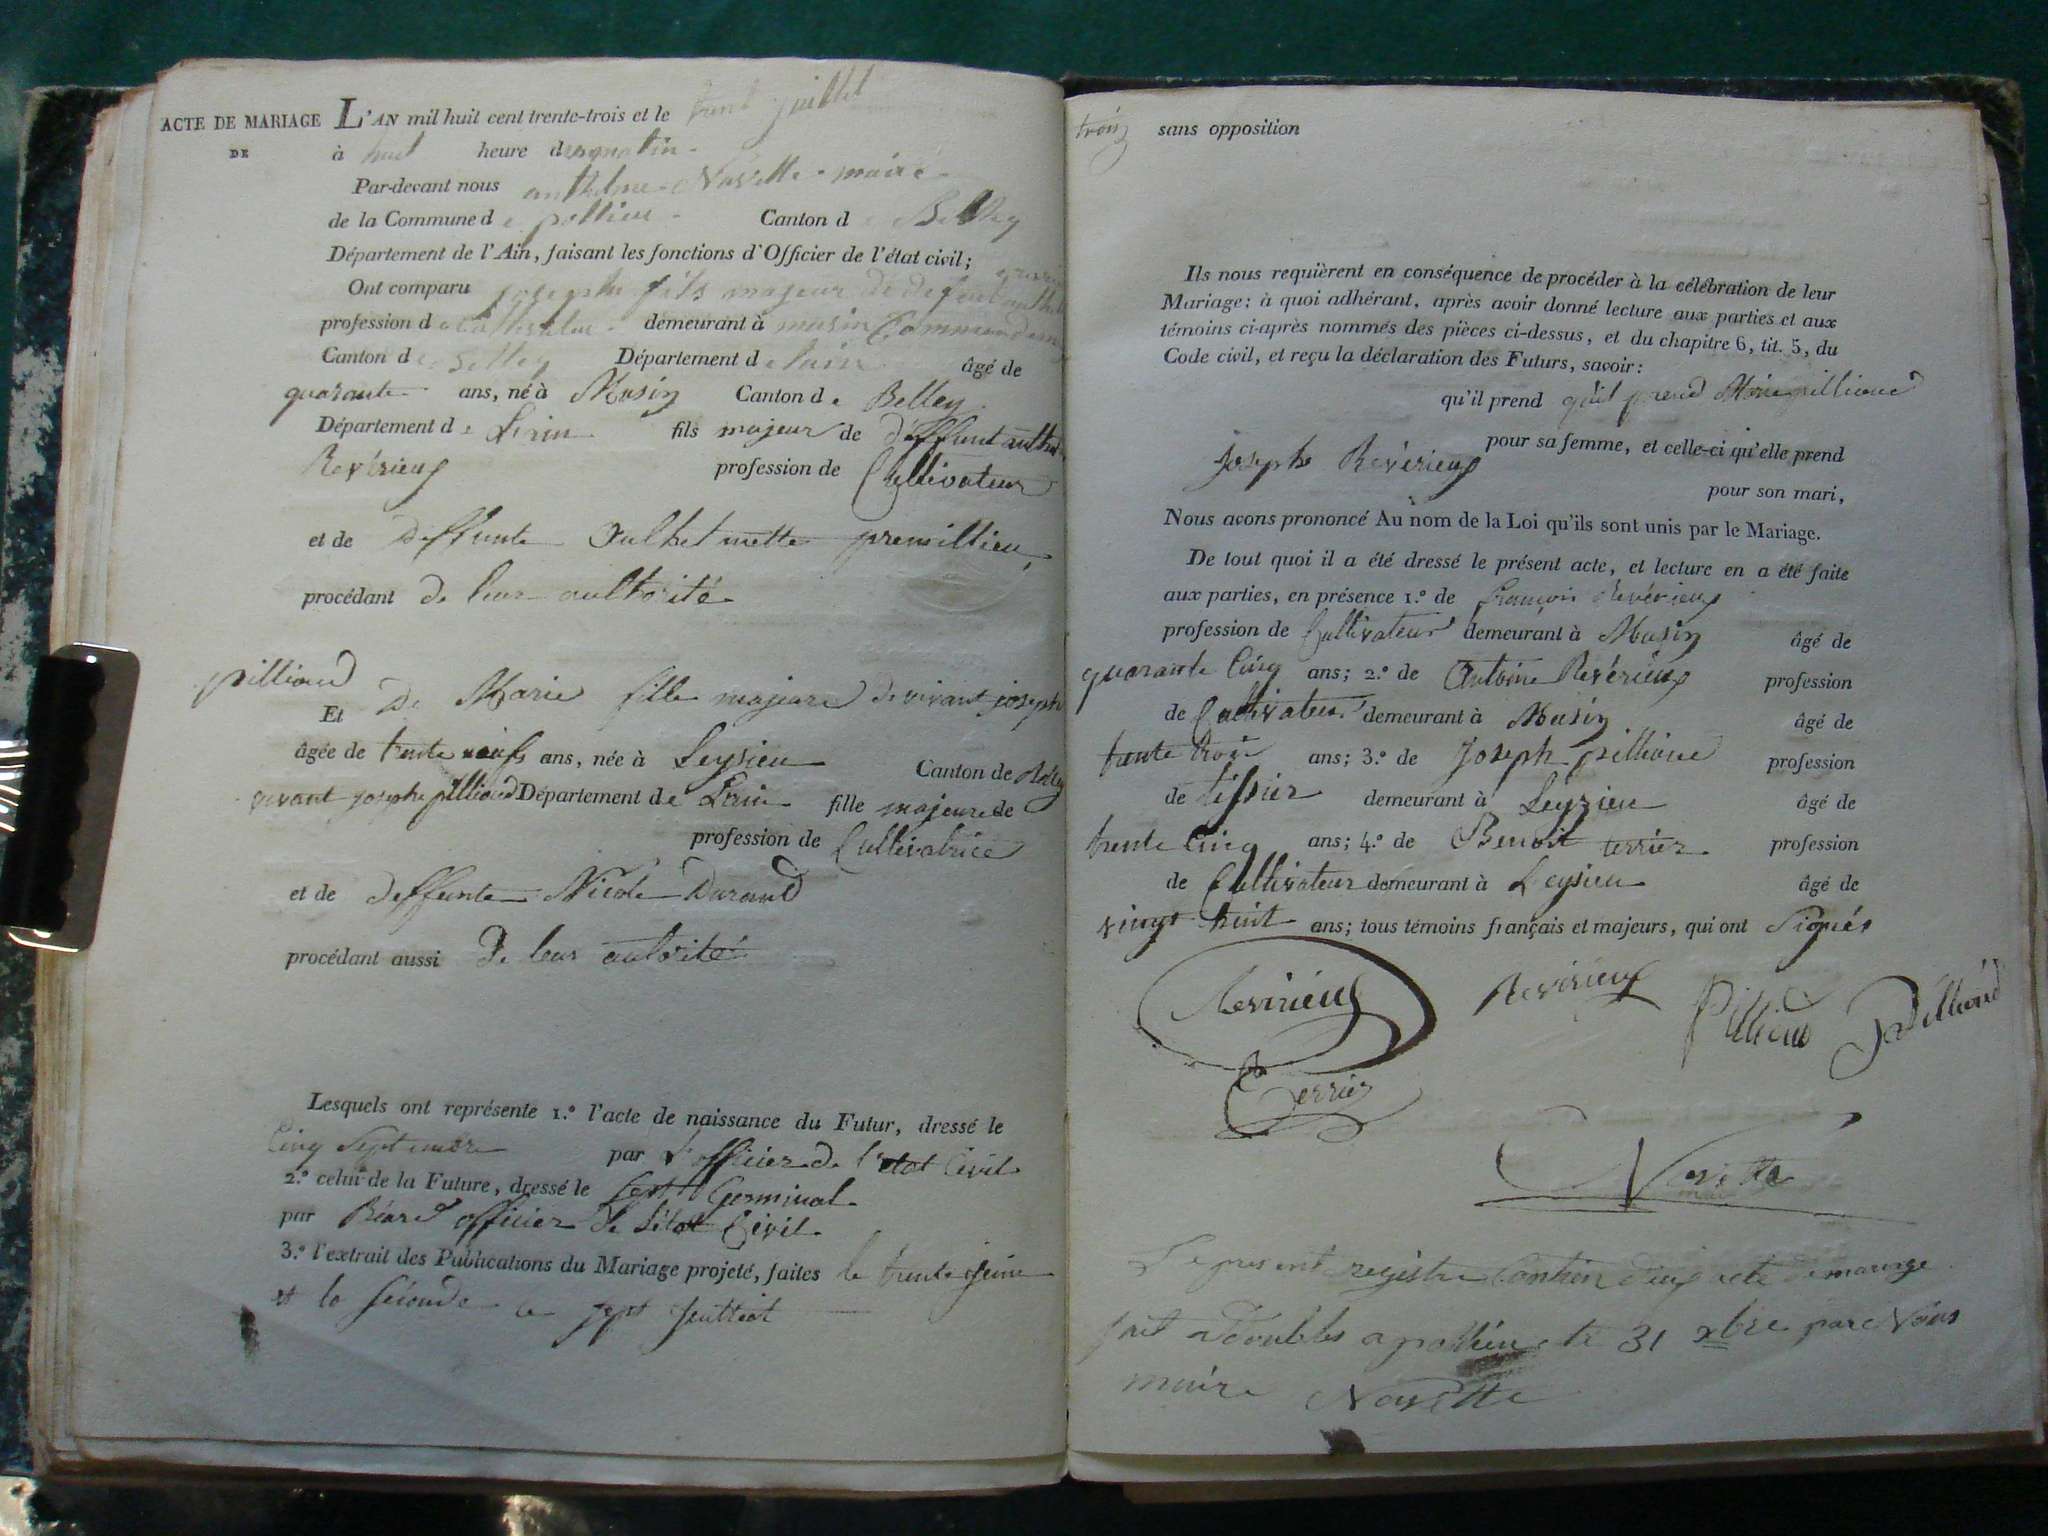 ACTE DE MARIAGE
DE
L'AN mil huit cent trente-trois et le juillet
à huit heure du matin
Par-devant nous anthelme Navette maire
de la Commune de pollieu Canton de Belley
Département de l'Ain, faisant les fonctions d'Officier de l'état civil;
Ont comparu joseph fils majeur de
profession de Cultivateur demeurant à musin Commune
Canton de Belley Département de lain âgé de
quarante ans, né à Musin Canton de Belley
Département de Lain fils majeur de deffunt
Revérieux profession de Cultivateur
et de Deffunte premillieu
procédant de leur aulthorité
pilliand
Et De Marie fille majeure de vivant joseph
âgée de trente neufs ans, née à Leysieu Canton de Belley
vivant joseph pilliand Département de Lain fille majeure de
profession de Cultivatrice
et de deffunte Nicole Durand
procédant aussi De leur autorité
Lesquels ont représente 1.º l'acte de naissance du Futur, dressé le
Cinq Septembre par L'officier de l'état Civil
2.º celui de la Future, dressé le Sept Germinal
par officier de létat Civil
3.º l'extrait des Publications du Mariage projeté, faites le trente juin
et la seconde le sept Juilliet
trois sans opposition
Ils nous requièrent en conséquence de procéder à la célébration de leur
Mariage; à quoi adhérant, après avoir donné lecture aux parties et aux
témoins ci-après nommés des pièces ci-dessus, et du chapitre 6, tit. 5, du
Code civil, et reçu la déclaration des Futurs, savoir:
qu'il prend qu'il prend Marie pilliand
pour sa femme, et celle-ci qu'elle prend
Joseph Revérieux
pour son mari,
Nous avons prononcé Au nom de la Loi qu'ils sont unis par le Mariage.
De tout quoi il a été dressé le présent acte, et lecture en a été faite
aux parties, en présence 1.º de François Revérieux
profession de Cultivateur demeurant à Musin âgé de
quarante Cinq ans; 2.º de Antoine Revérieux profession
de Cultivateur demeurant à Musin âgé de
trente trois ans; 3.º de Joseph pilliand profession
de tissier demeurant à Leyzieu âgé de
trente Cinq ans; 4.º de Benoit terrier profession
de Cultivateur demeurant à Leysieu âgé de
vingt huit ans; tous témoins français et majeurs, qui ont Signés
Revirieux Revirieux Pilliand Pilliand
Terrier
Navette
Le present registre Contien acte de mariage
fait a Doubles a pollieu le 31 xbre par Nous
maire Navette